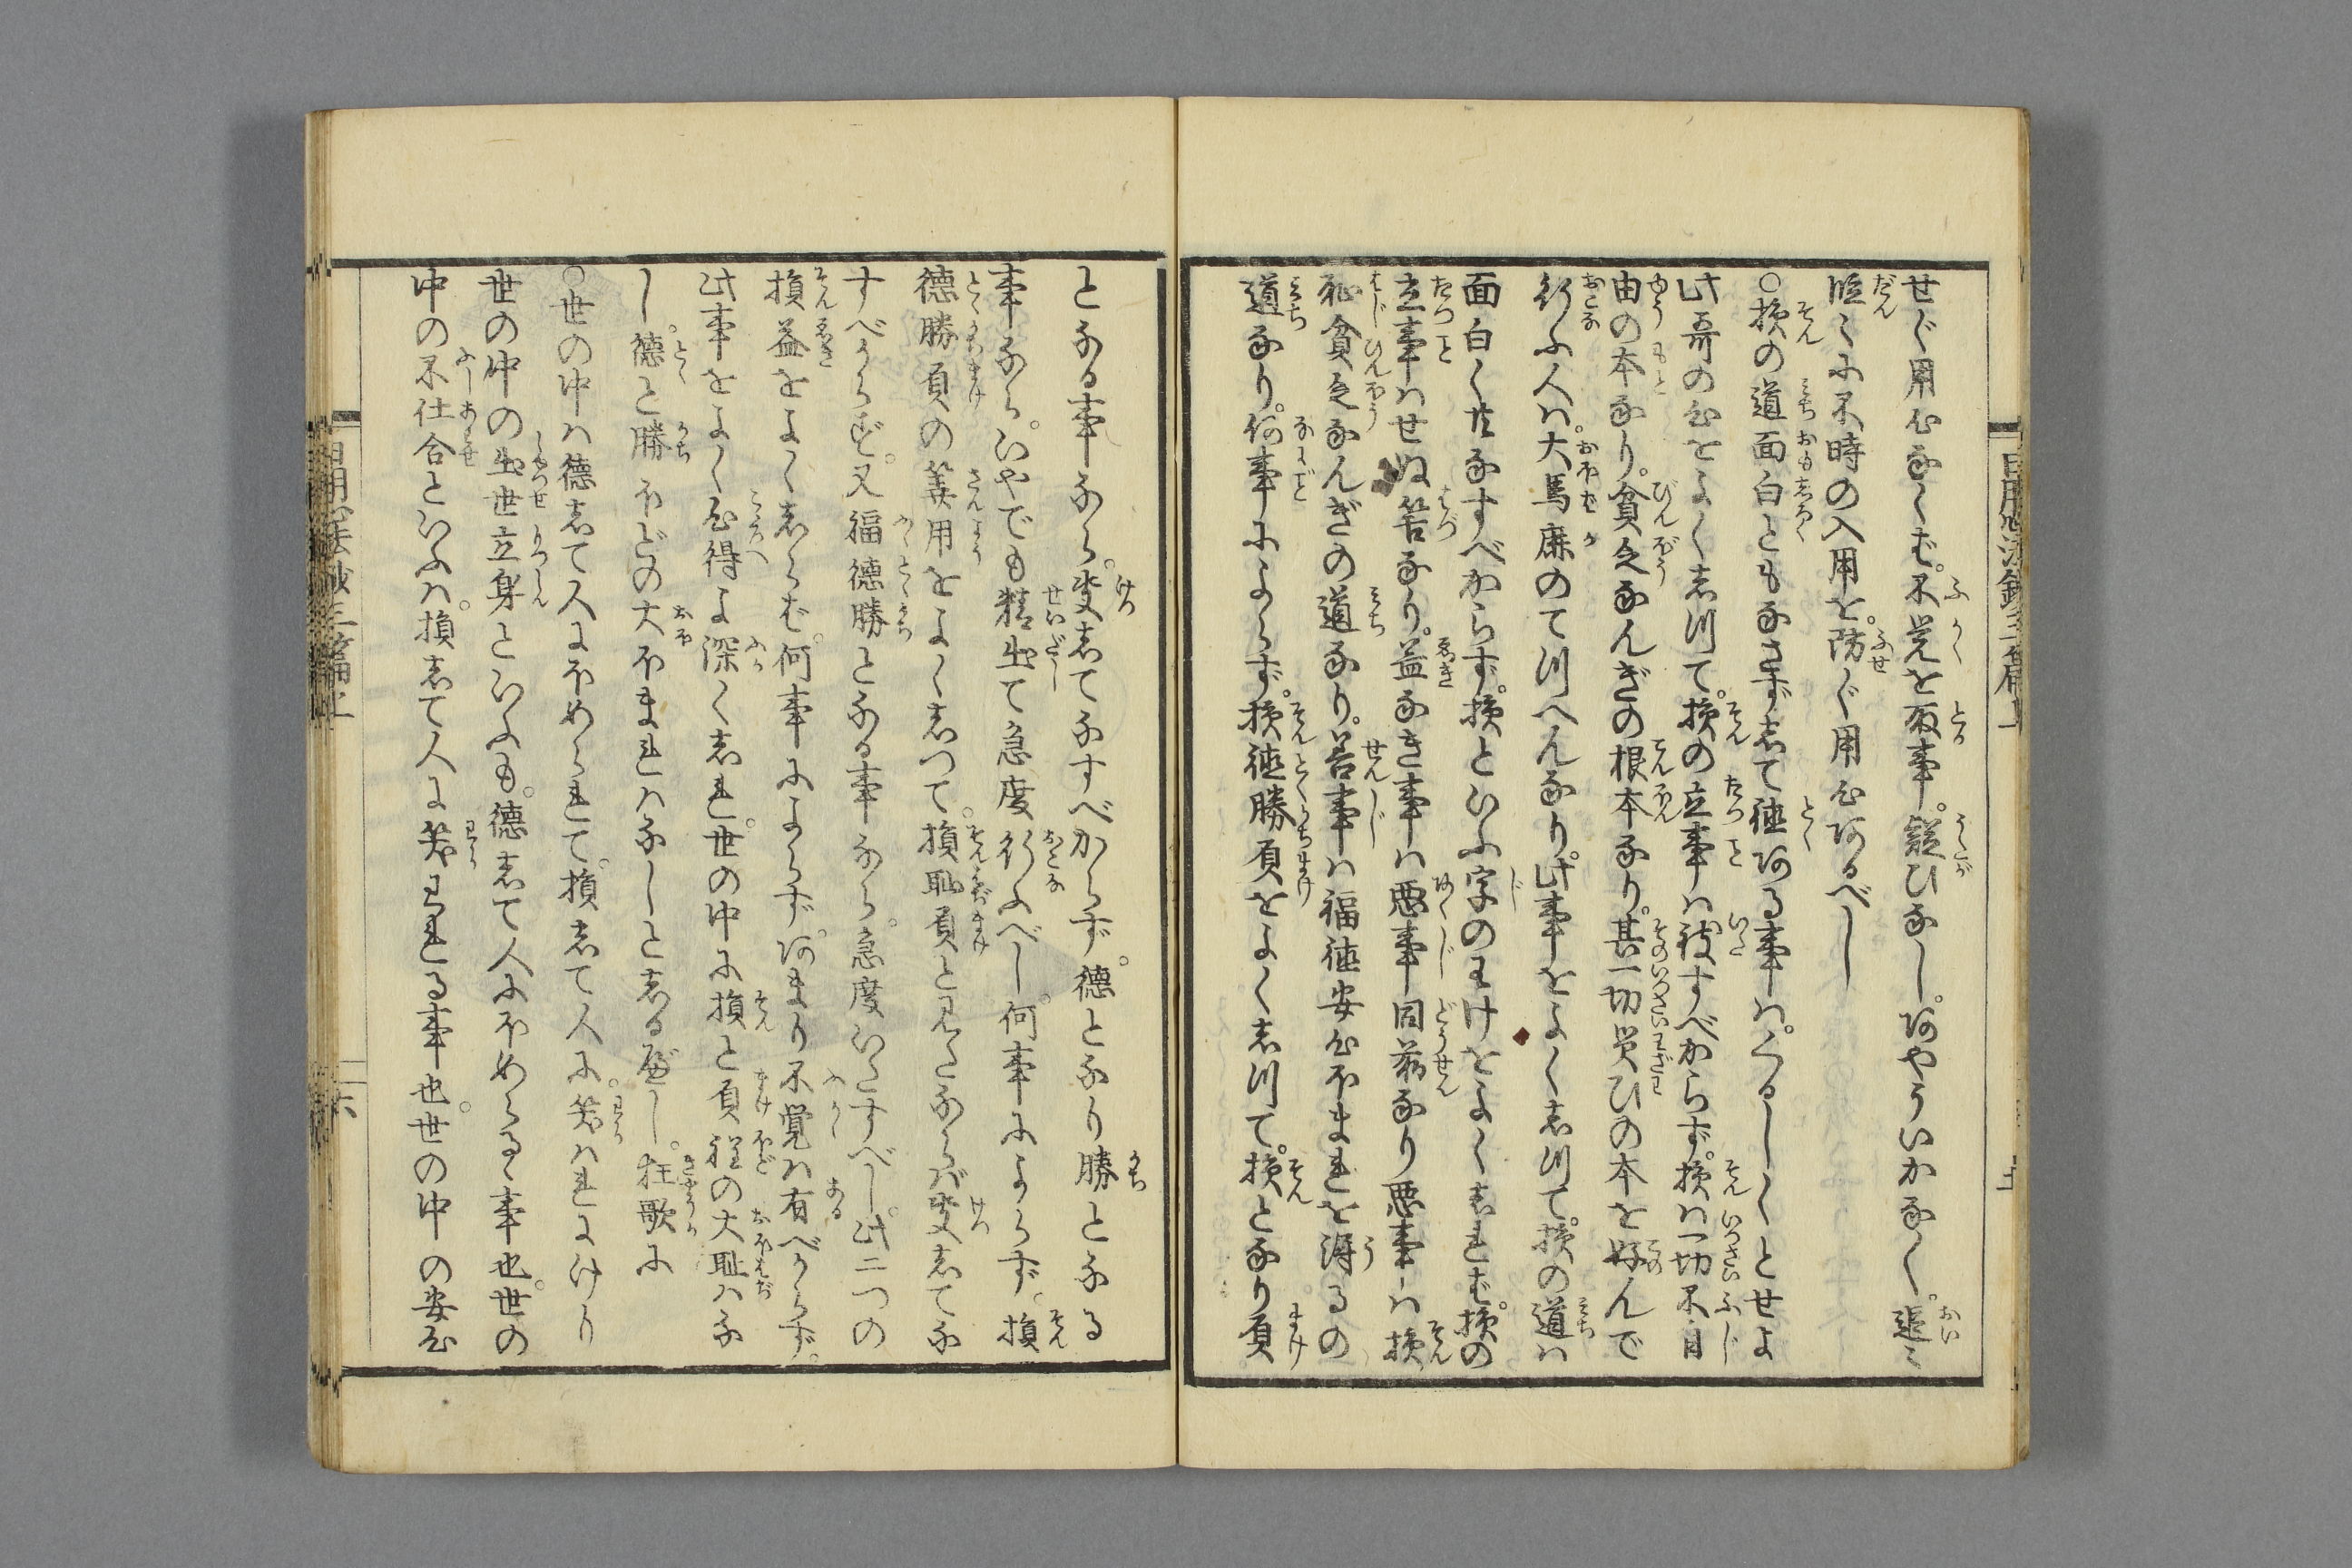 せぐ用心なくば。不覚を取事。疑ひなし。あやういかなく。追々
段々に不時の入用を。防ぐ用心あるべし
○損の道面白ともなさず志て徳ある事ハ。くるしくとせよ
此哥の心をよく志つて。損の立事ハ致すべからず。損ハ一切不自
由の本なり。貧乏なんぎの根本なり。其一切㒵ひの本を好んで
行ふ人ハ。大馬鹿のて川へんなり。此事をよく志つて。損の道ハ
面白く共なすべからず。損といふ字のわけをよく志れば。損の
立事ハせぬ筈なり。益なき事ハ悪事同前なり悪事ハ損
恥貧乏なんぎの道なり。善事ハ福徳安心ほまれを得るの
道なり。何事によらず。損徳勝負をよく志つて。損となり負
となる事なら。決志てなすべからず。徳となり勝となる
事なら。いやでも精出て急度行ふべし。何事によらず。損
徳勝負の筭用をよく志つて。損恥負と見へたならバ決志てな
すべからず。又福徳勝となる事なら。急度いたすべし。此二つの
損益をよく志らば。何事によらず。あまり不覚ハ有べからず。
此事をよく心得よ深く志れ。世の中に損と負程の大恥ハな
し。徳と勝ほどの大ほまれハなしと志る べし。狂歌に
○世の中ハ徳志て人にほめられて。損志て人に。笑ハれにけり
世の中の出世立身といふも。徳志て人にほめらるゝ事也。世の
中の不仕合といふハ。損志て人に笑わるゝ事也。世の中の安心